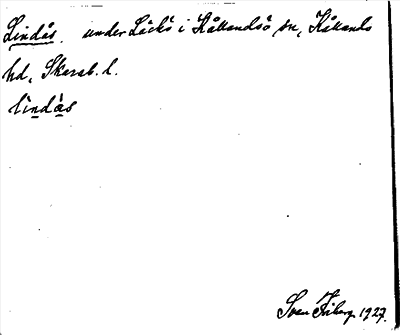 Lindås. under Läckö i Kållandsö sn, Kållands
hd, Skarab. l.
lìndàs
Sven Friberg 1927.